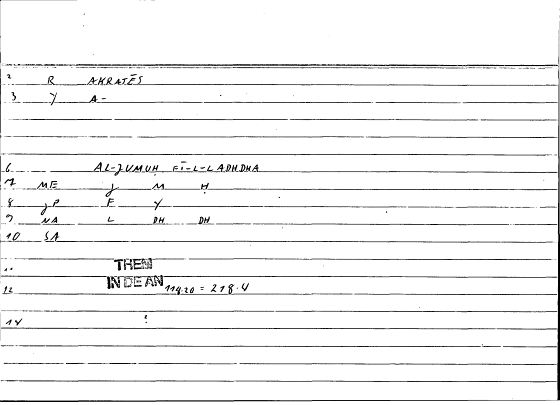 2 R AKRATĒS
3 Y A-
6 AL-JUMUḤ FĪ-L-LADHDHA
7 ME J M Ḥ
8 JP F Y
9 NA L DH DH
10 SA
11 THEM
12 IN DE AN 1119.20 = 218.4
14